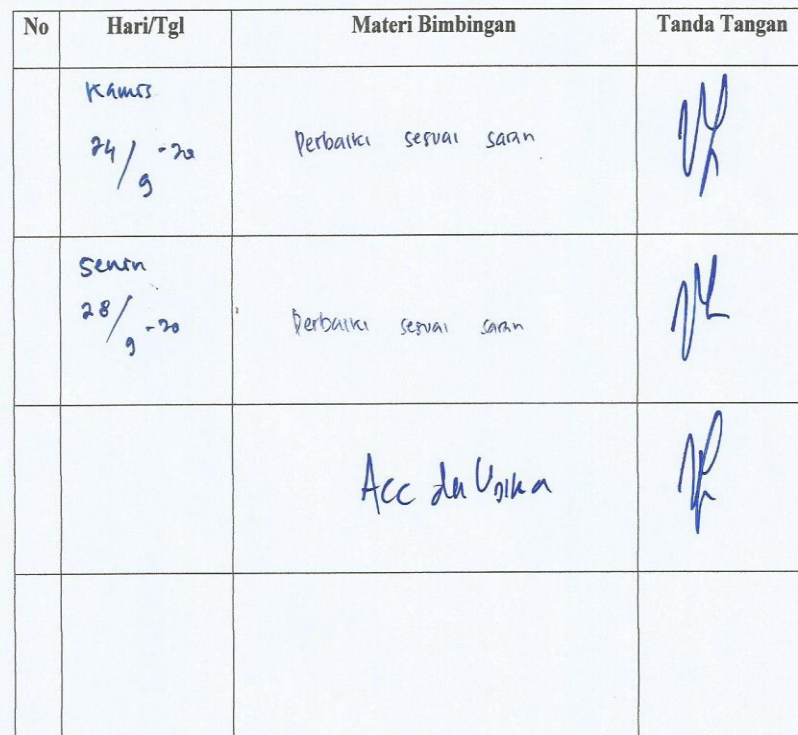 No Hari/Tgl Materi Bimbingan Tanda Tangan
Kamis
24/9-20 Perbaiki sesuai saran
Senin
28/9-20 Perbaiki sesuai saran
Acc